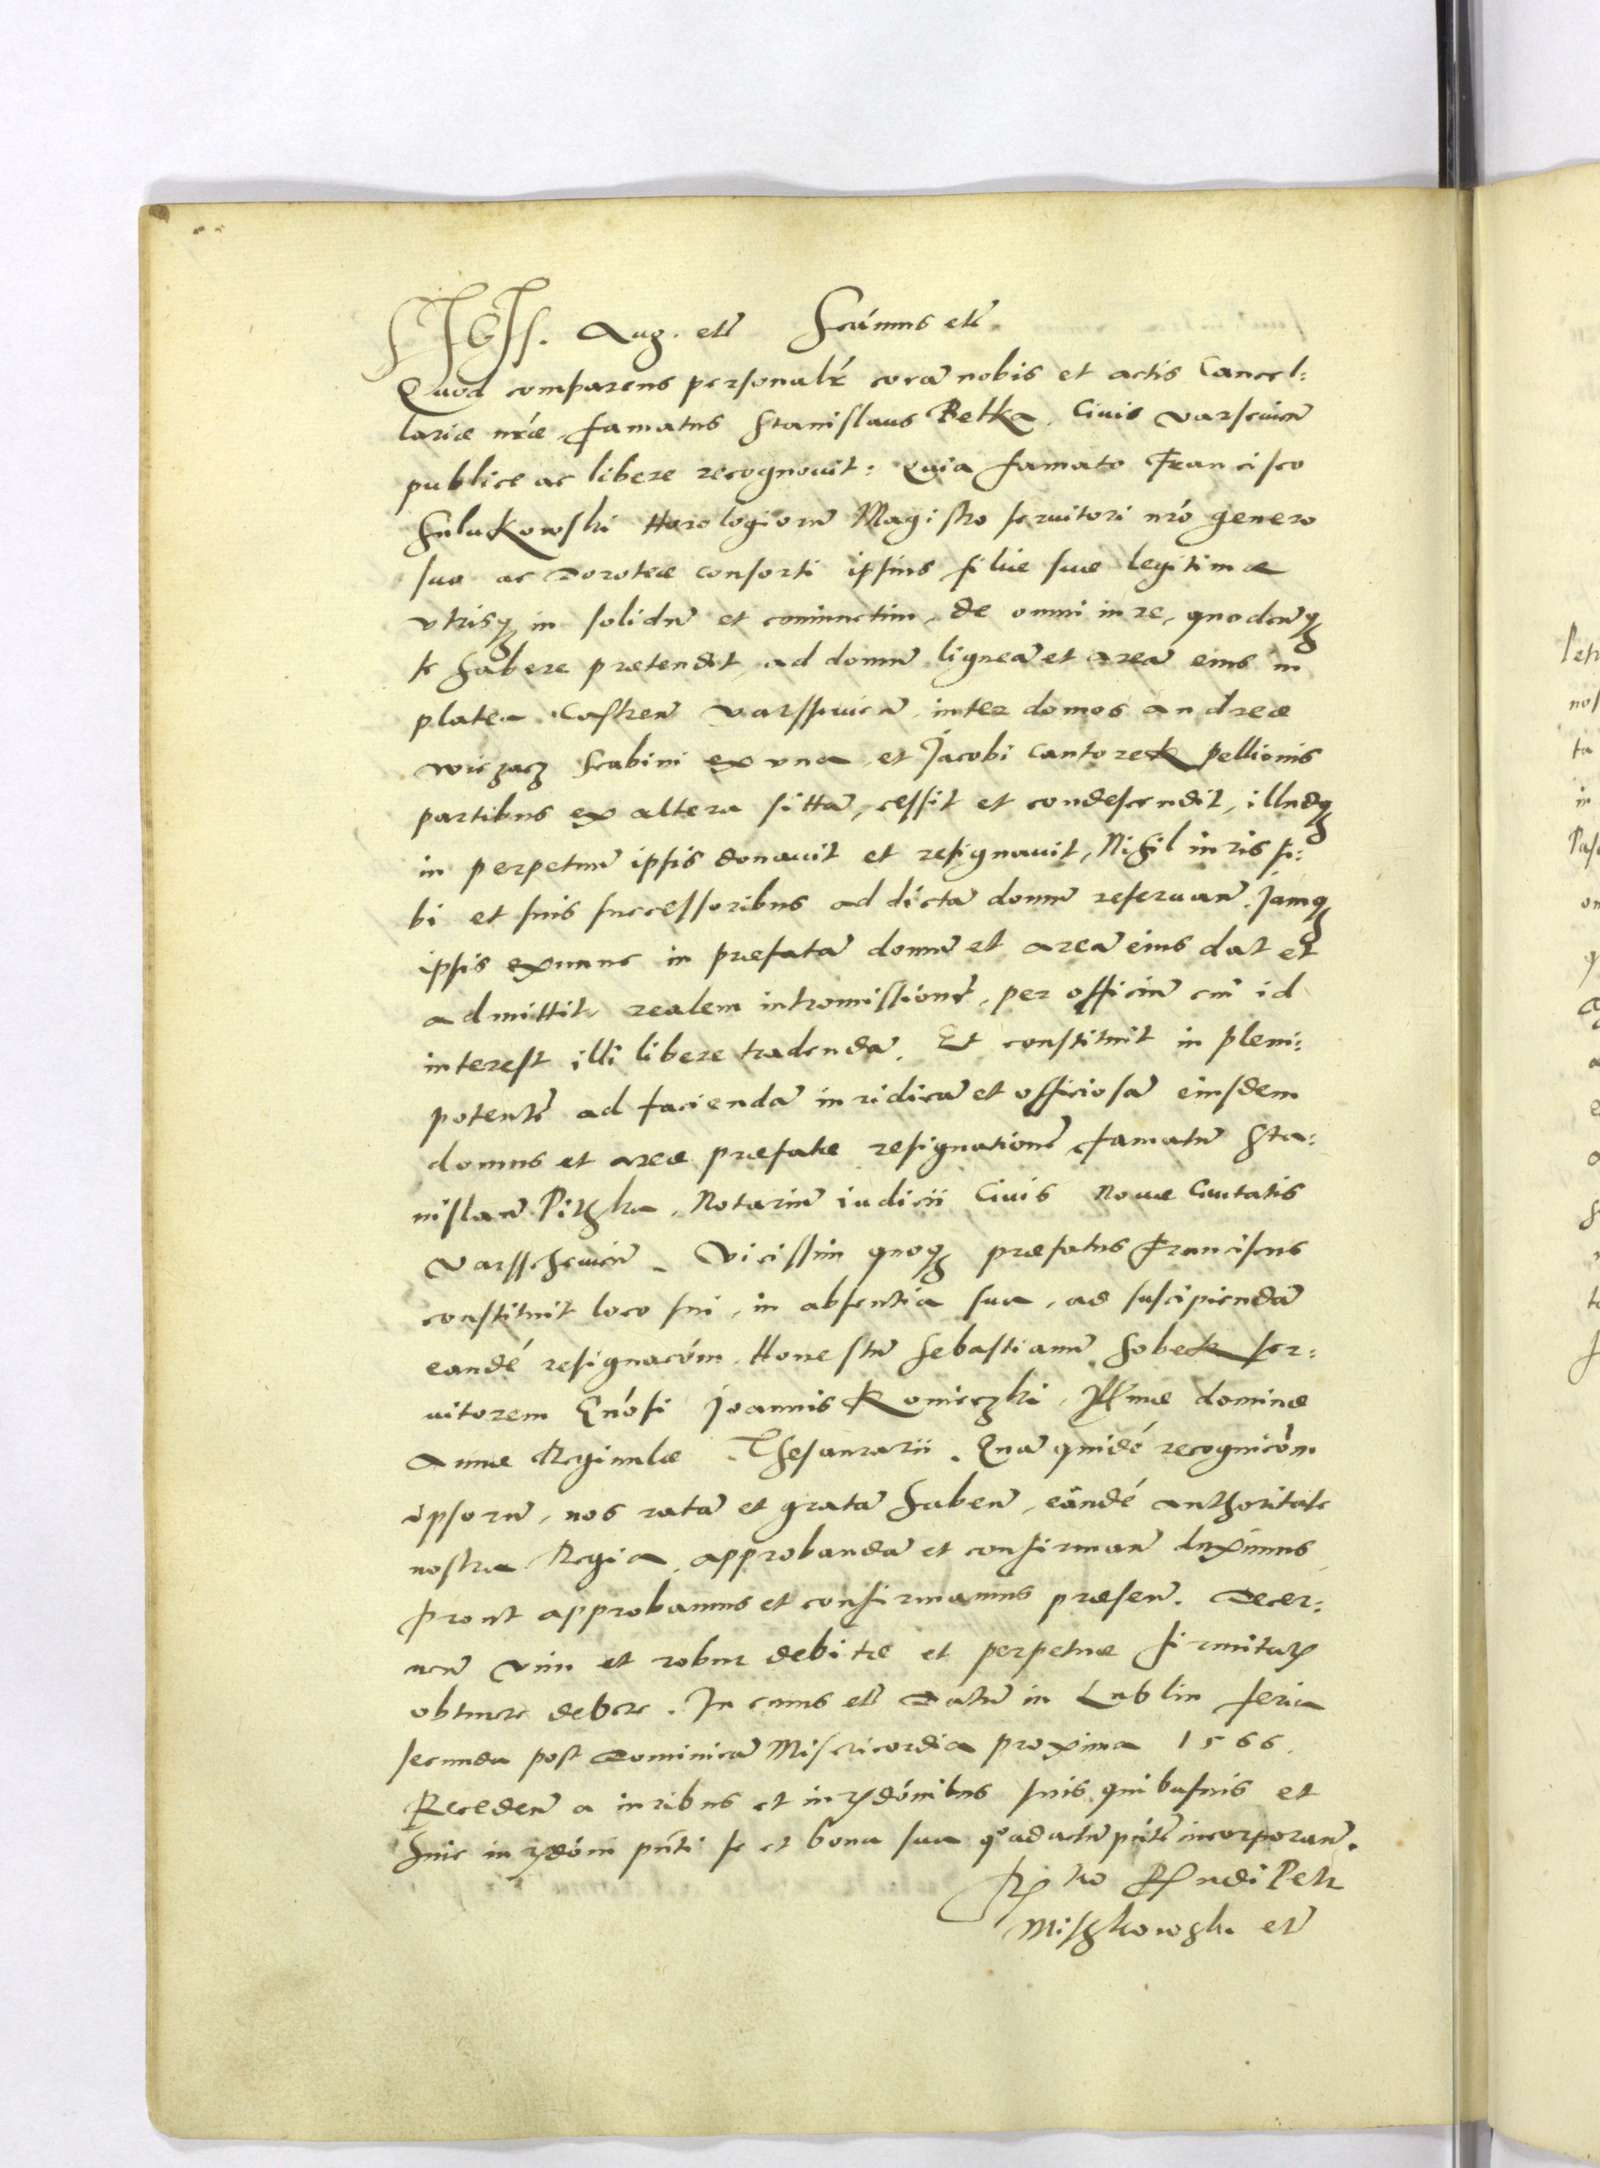 Aug. etc̃ Sc̃imus etc̃
Quod comparens personalr̃ corã nobis et actis Cancel:
lariæ nr̃æ, famatus Stanislaus Belka, Ciuis Varseuien̄
publice ac libere recognouit: Quia famato Francisco
Sulukowski Horologiorũ Magistro seruitori nr̃o genero
suo ac Doroteæ consorti ipsius filiæ suæ legitimæ
vtrisq; in solidũ et coniunctim, de omni iure, quodcunq;
se habere prætendit, ad domũ ligneã et areã eius in
platea Castren̄ Varssouien̄, inter domos Andreæ
Wiczacz Scabini ex vna, et Jacobi Cantorek pellionis
partibus ex altera sittã, cessit et condescendit, illudq;
in perpetuũ ipsis donauit et resignauit, Nihil iuris si:
bi et suis successoribus ad dictã domũ reseruan̄. Jamq;
ipsis exnunc in præfatã domũ et areã eius dat et
admittit realem intromissionẽ, per officiũ cui id
interest illi libere tradendã. Et constituit in pleni:
potentẽ ad faciendã iuridicã et officiosã eiusdem
domus et areæ præfatæ resignationẽ, famatũ Sta:
nislaũ Pitzka, Notariũ iudicii Ciuis Nouæ Ciuitatis
Varsscheuien̄. Vicissim quoq; præfatus Franciscus
constituit loco sui, in absentia sua, ad suscipiendã
eandẽ resignac̃om, Honestũ Sebastianũ Sobek ser:
uitorem Gñosi Joannis Konieczki, dominæ
Annæ Reginulæ Thesaurarii. Quã quidẽ recognic̃om
ipsorũ, nos ratã et gratã haben̄, eandẽ authoritate
nostra Regia, approbandã et confirman̄ duximus
prout approbamus et confirmamus præsen̄. Decer:
nen̄ vim et robur debitæ et perpetuæ firmitatis
obtinere debere. In cuius etc̃ Datũ in Lublin feria
secunda post Dominicã Misericordia proxima 1566.
Receden̄ a iuribus et iurisdo͂nibus suis quibusuis et
huic iurisdo͂ni pñti se et bona sua quoad actũ pñtẽ incorporan̄.
Rndi Petri
Miszkowski etc̃